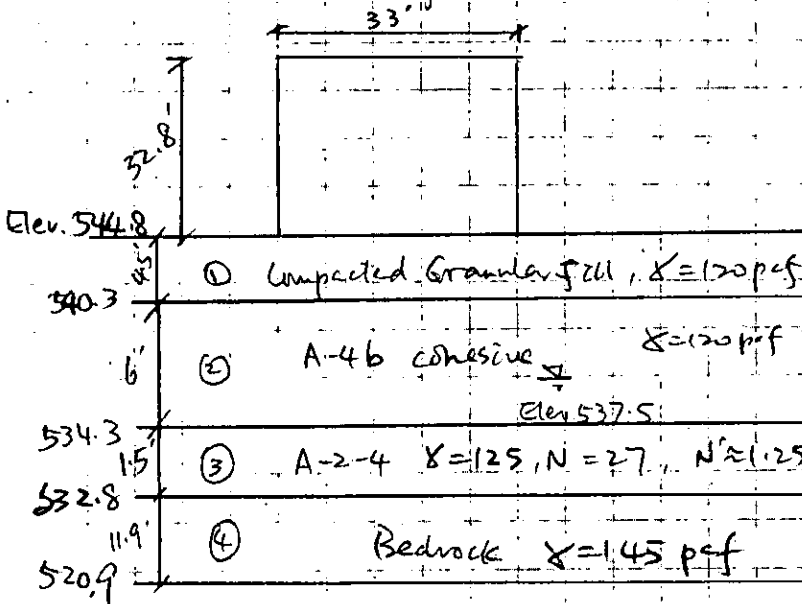 33'
32.8'
Elev. 544.8
4.5' ① Compacted Granular fill, γ=120 pcf
540.3
6' ② A-4b cohesive γ=120 pcf
Elev 537.5
534.3
1.5' ③ A-2-4 γ=125, N=27, N'≈1.25
532.8
11.9' ④ Bedrock γ=145 pcf
520.9